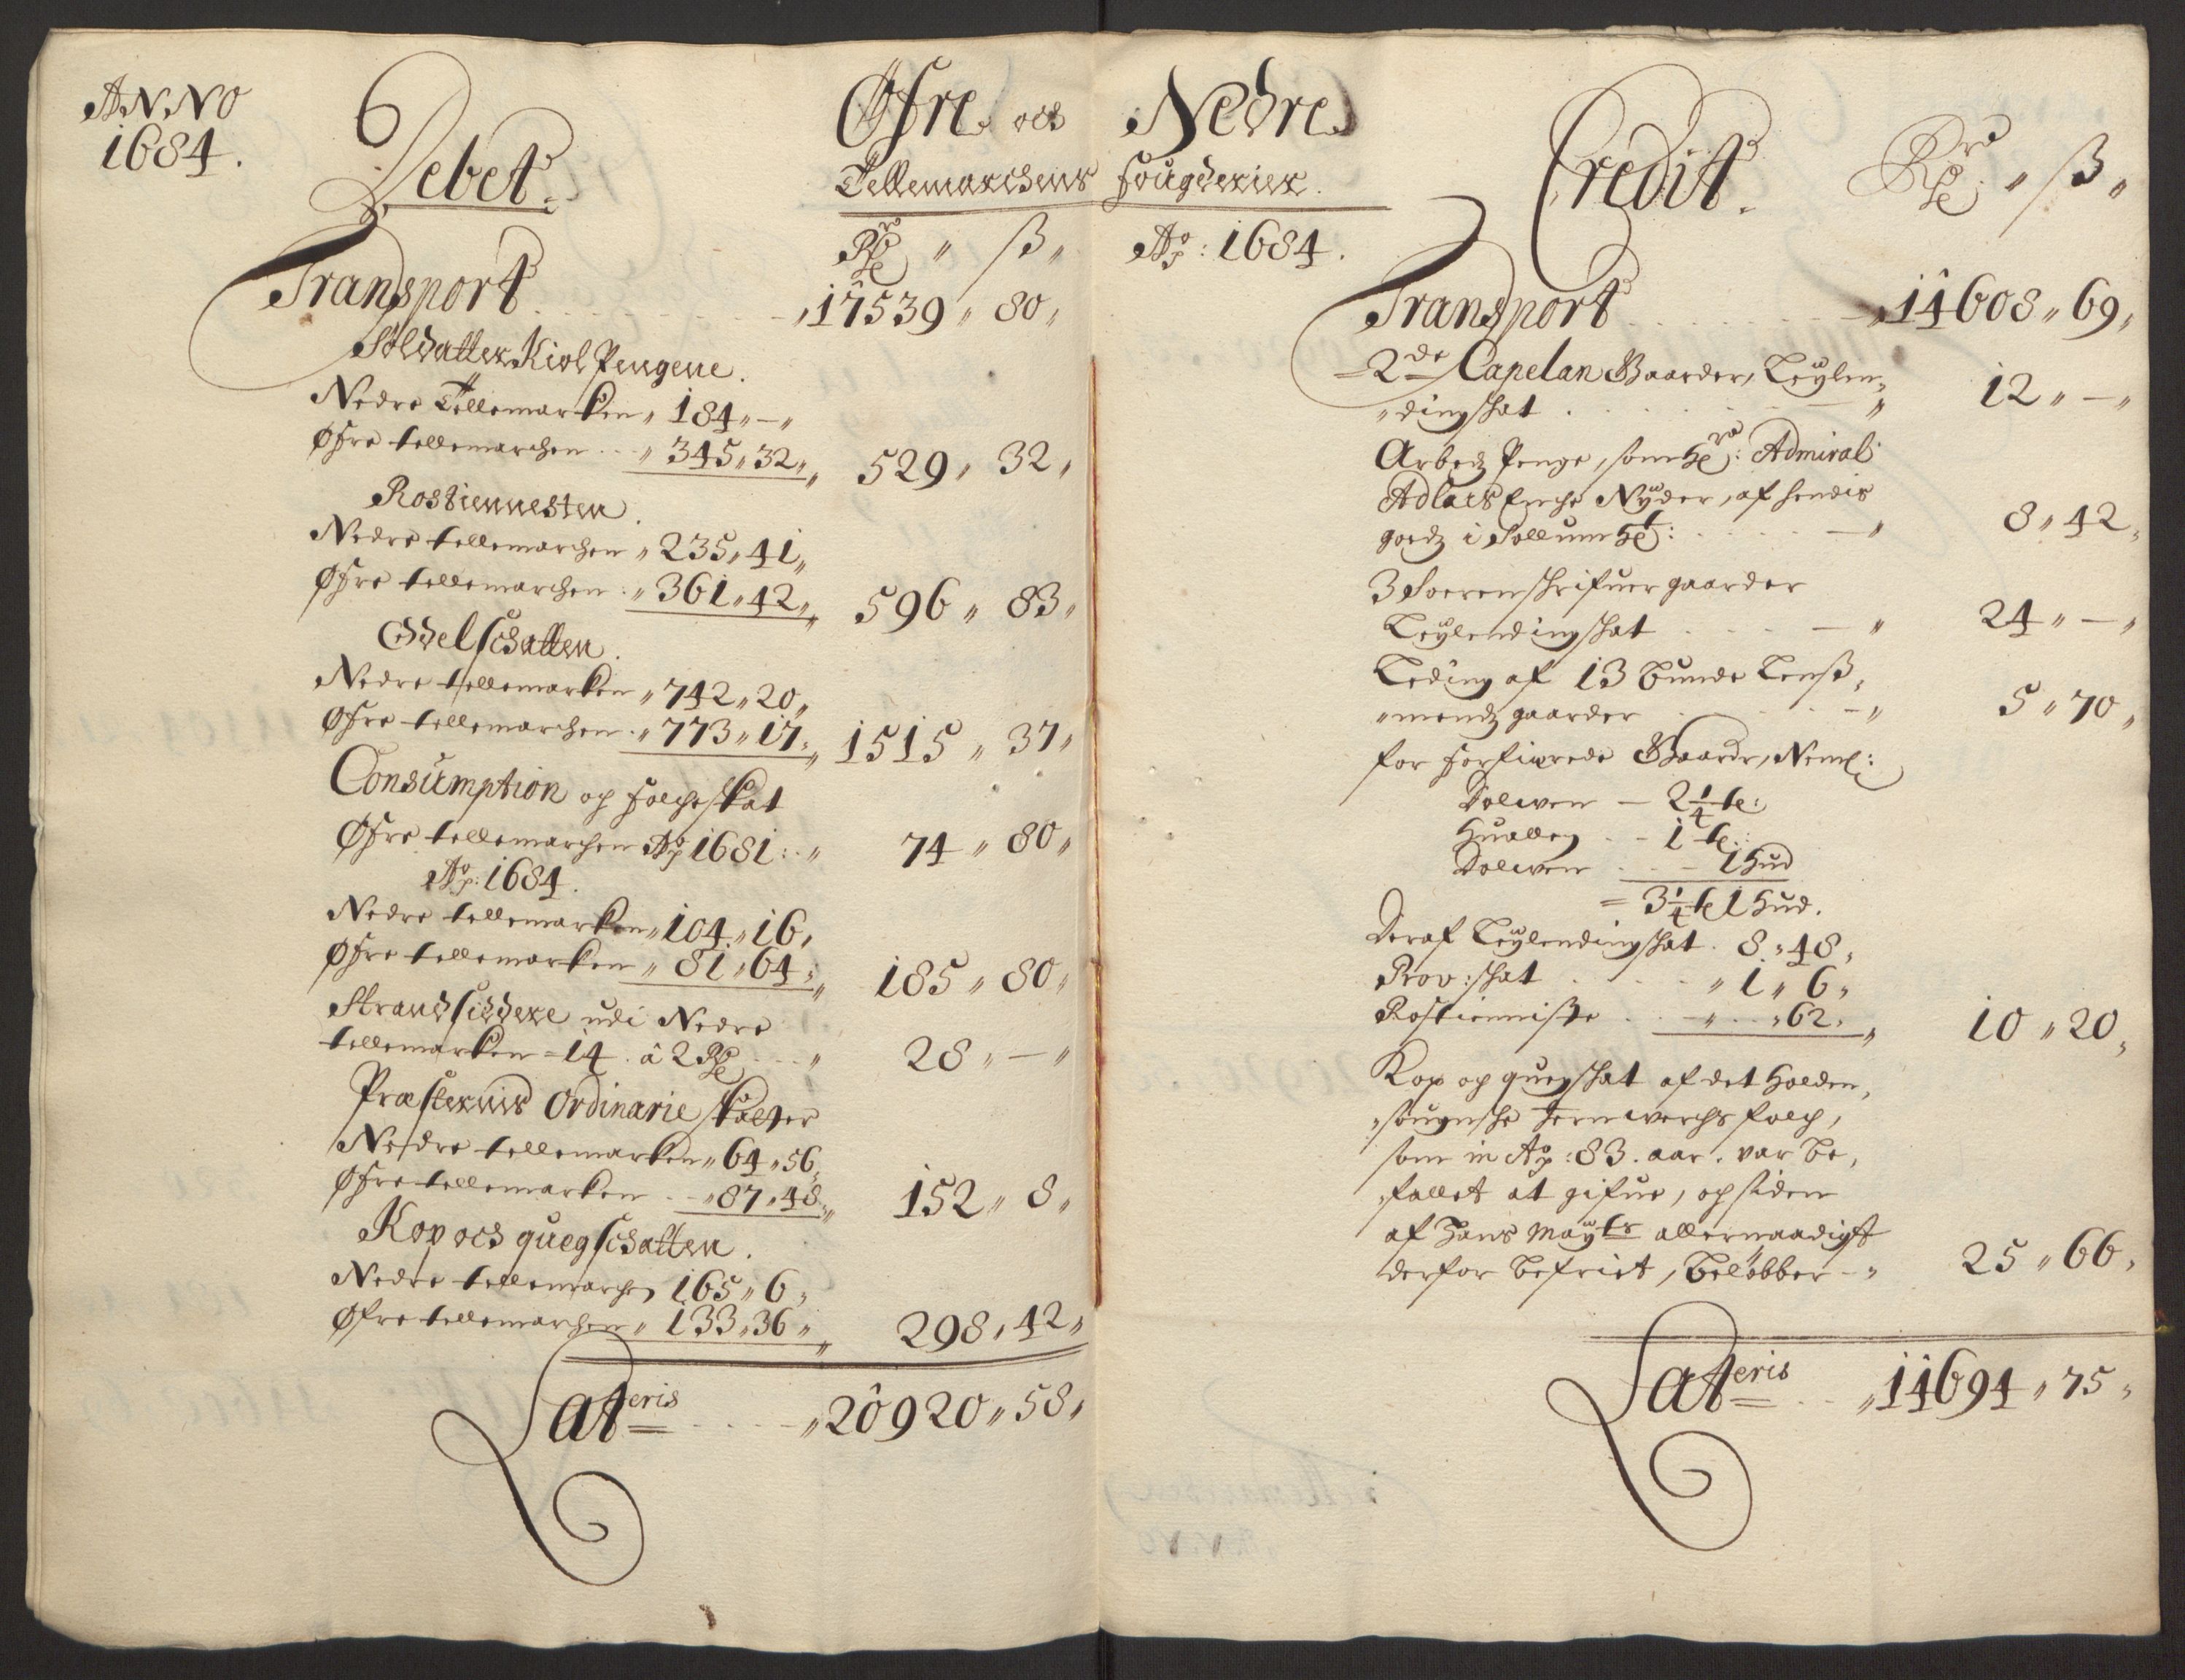 ANNO
1684.
Debet.
Øfre och Nedre
Tellemarchens fougderier.
Rdr " ß "
Ao: 1684.
Transport . . . . "17539" 80"
Soldatter Kiol Pengene.
Nedre Tellemarken " 184 " — "
Øfre tellemarchen . . " 345 " 32 " 529 " 32 "
Rostiennesten.
Nedre tellemarchen " 235 " 41 "
Øfre tellemarchen : " 361 " 42 " 596 " 83 "
Odelschatten.
Nedre tellemarken " 742 " 20 "
Øfre tellemarchen . " 773 " 17 " 1515 " 37 "
Consumption og folcheskat
Øfre tellemarchen Ao 1681 : . " 74 " 80 "
Ao: 1684.
Nedre tellemarken " 104 " 16 "
Øfre tellemarken " 81 " 64 " 185 " 80 "
Strandsiddere udi Nedre
tellemarken = 14 . â 2 Rdr . . . " 28 " — "
Præsternis Ordinarie skatter
Nedre tellemarken " 64 " 56 "
Øfre tellemarken . . " 87 " 48 " 152 " 8 "
Kop och quegschatten.
Nedre tellemarchen 165 " 6 "
Øfre tellemarchen " 133 " 36 " 298 " 42 "
Lateris . . . . " 20920 " 58 "
Credit. Rdr " ß "
Transport . . . . " 14608 " 69 "
= 2de Capelan Gaarder, Leylen,
"dingshat . . . . " 12 " — "
Arbedz Penge, som Hr: Admiral
Adlers Enche Nyder, af hendis
goedz i Sollum Hd: . . . — " 8 " 42 "
3 Soerenschrifuer gaarder
Leylendingshat . . . — " 24 " — "
Leding af 13 Bunde Lenß,
"mendz gaarder . . . — " 5 " 70 "
for forfierede Gaarde, Neml:
Dolwen — 2 1/4 td:
Hualleg . . — 1 td:
Dolwen . . — 1 Hud
= 3 1/4 td 1 Hud.
Deraf Leylendingshat . 8 " 48 "
Prov: shat . . . " 1 " 6 "
Rostienniste . . — " . . " 62 " 10 " 20 "
Kop og quegshat af det Holden,
"sougnshe Jernwerchs folch,
som in Ao: 83. aar. var be,
"fallet at gifue, og siden
af Hans Mayts allernaadigst
derfor befriet, belöbber — " 25 " 66 "
Lateris . . . " 14694 " 75 "